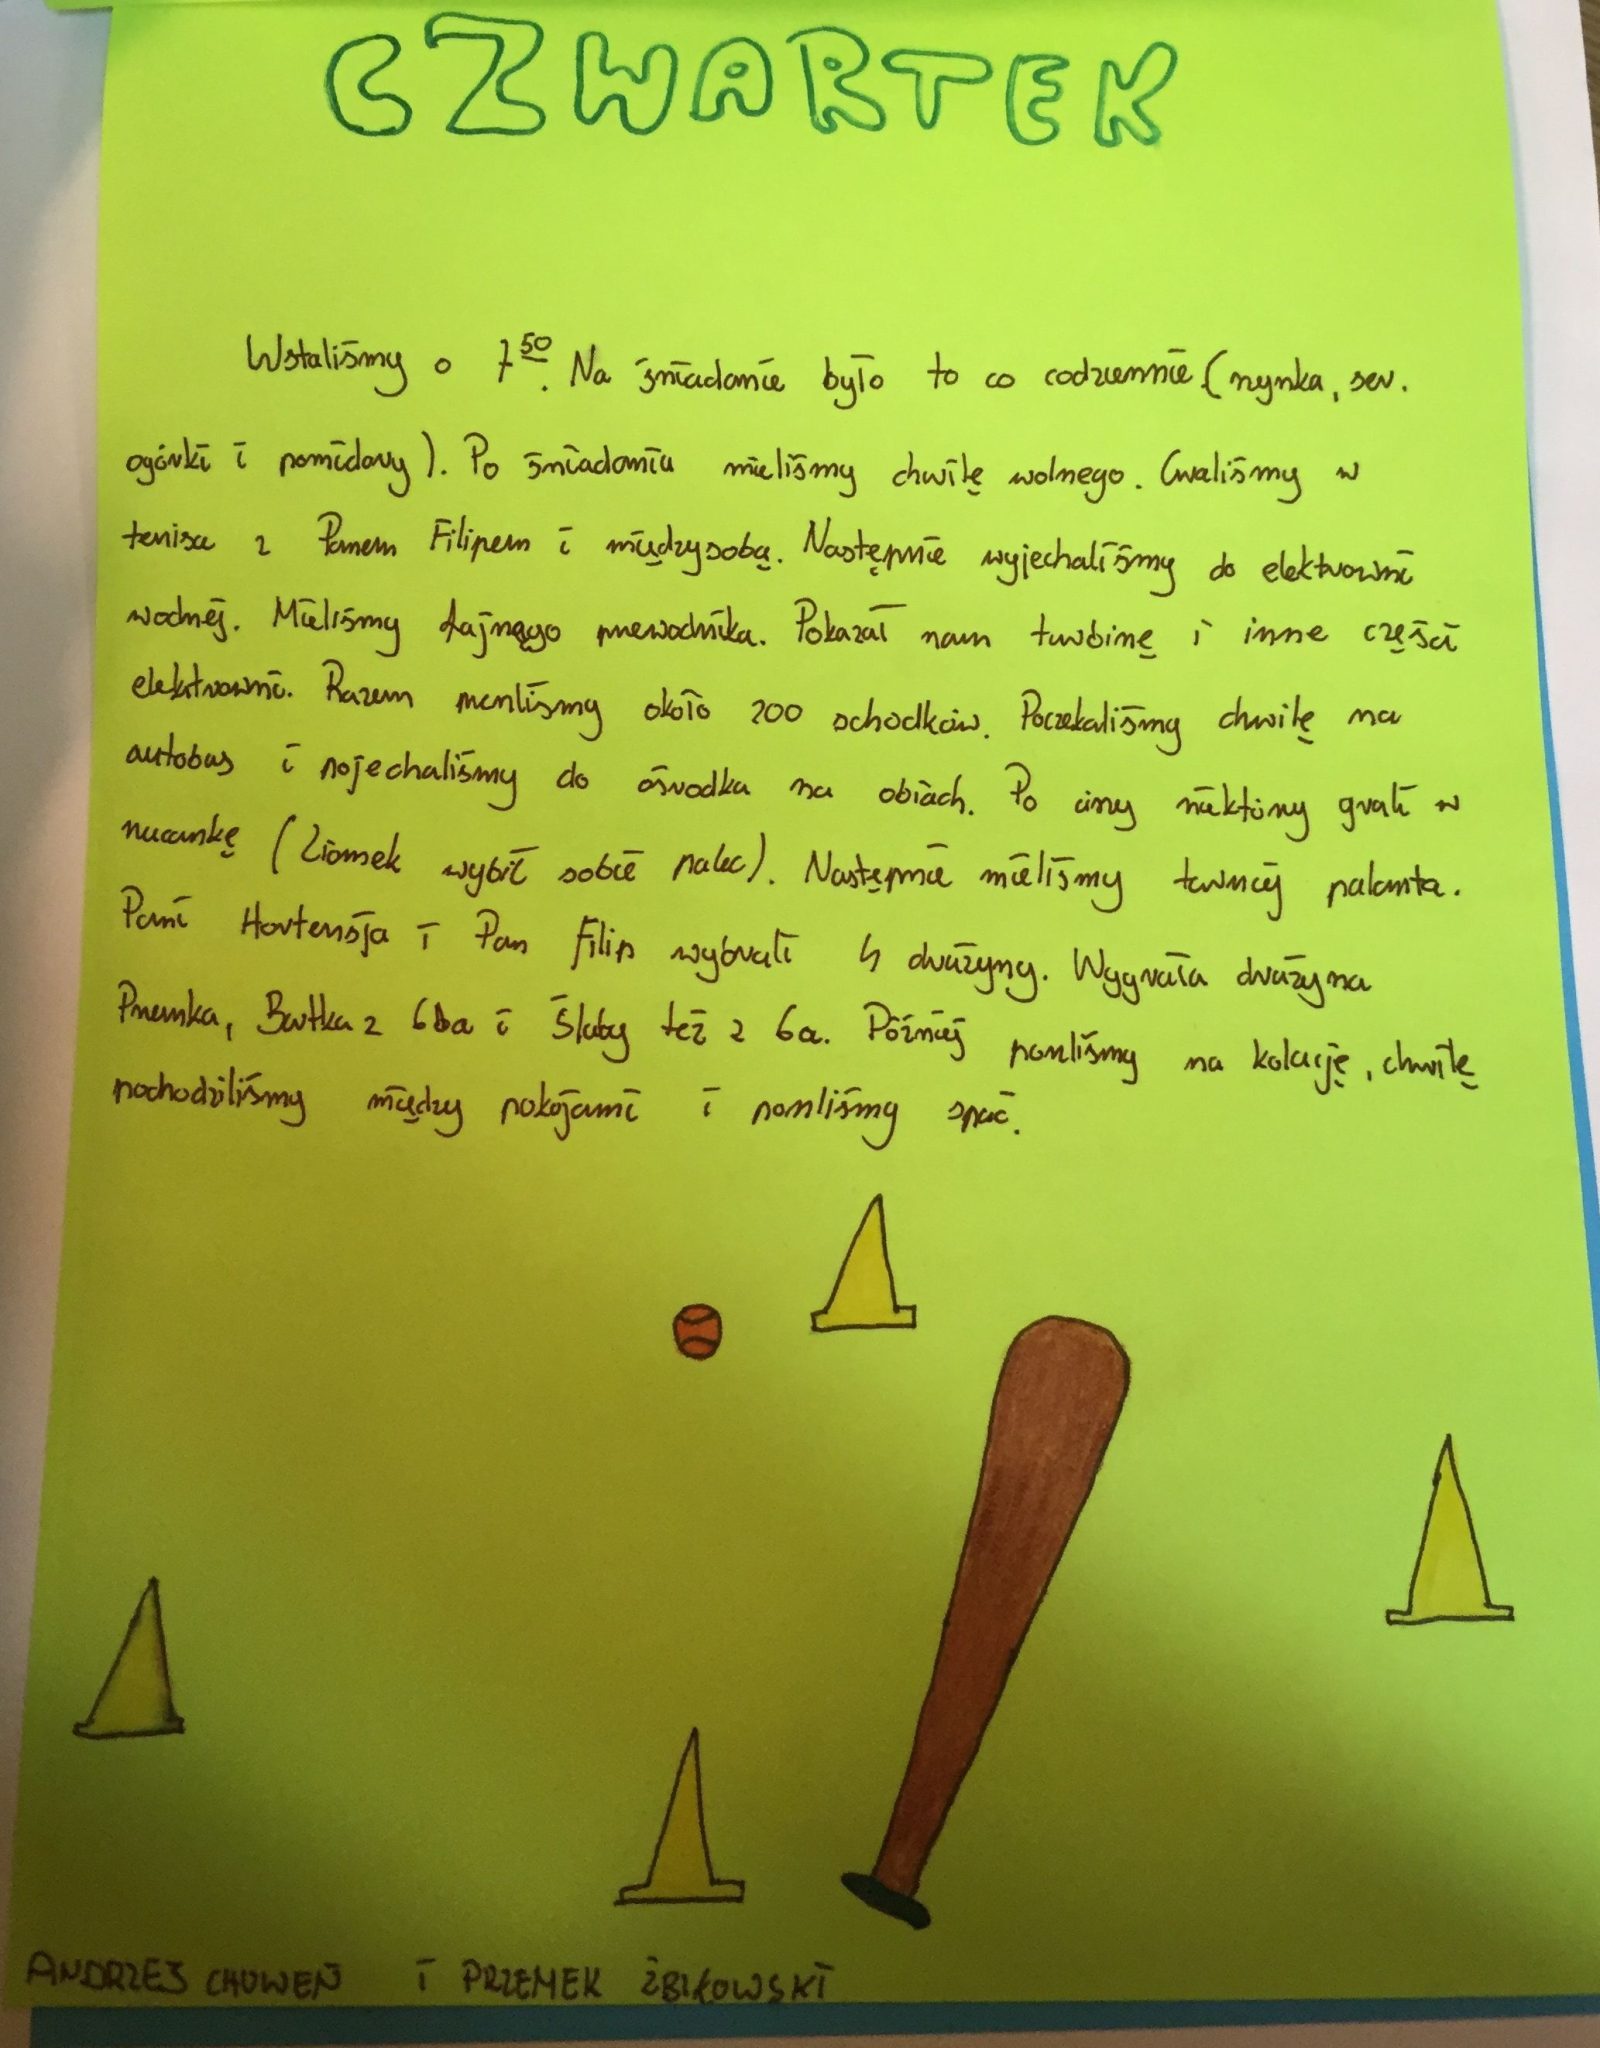 CZWARTEK
Wstaliśmy o 7 50. Na śniadanie było to co codziennie (szynka, ser.
ogórki i pomidory). Po śniadaniu mieliśmy chwilę wolnego. Graliśmy w
tenisa z Panem Filipem i międzysobą. Następnie wyjechaliśmy do elektrowni
wodnej. Mieliśmy fajnego przewodnika. Pokazał nam turbinę i inne części
elektrowni. Razem przeszliśmy około 200 schodków. Poczekaliśmy chwilę na
autobus i pojechaliśmy do ośrodka na obiach. Po ciszy niektórzy grali w
ruccankę (Ziomek wybił sobie palec). Następnie mieliśmy turniej palanta.
Pani Hortensja i Pan Filip wybrali 4 drużyny. Wygrała drużyna
Przemka, Bartka z 6a i Śluby też z 6a. Później poszliśmy na kolację, chwilę
pochodziliśmy między pokojami i poszliśmy spać.
ANDRZEJ CHUWEŃ i PRZEMEK ŻBIKOWSKI